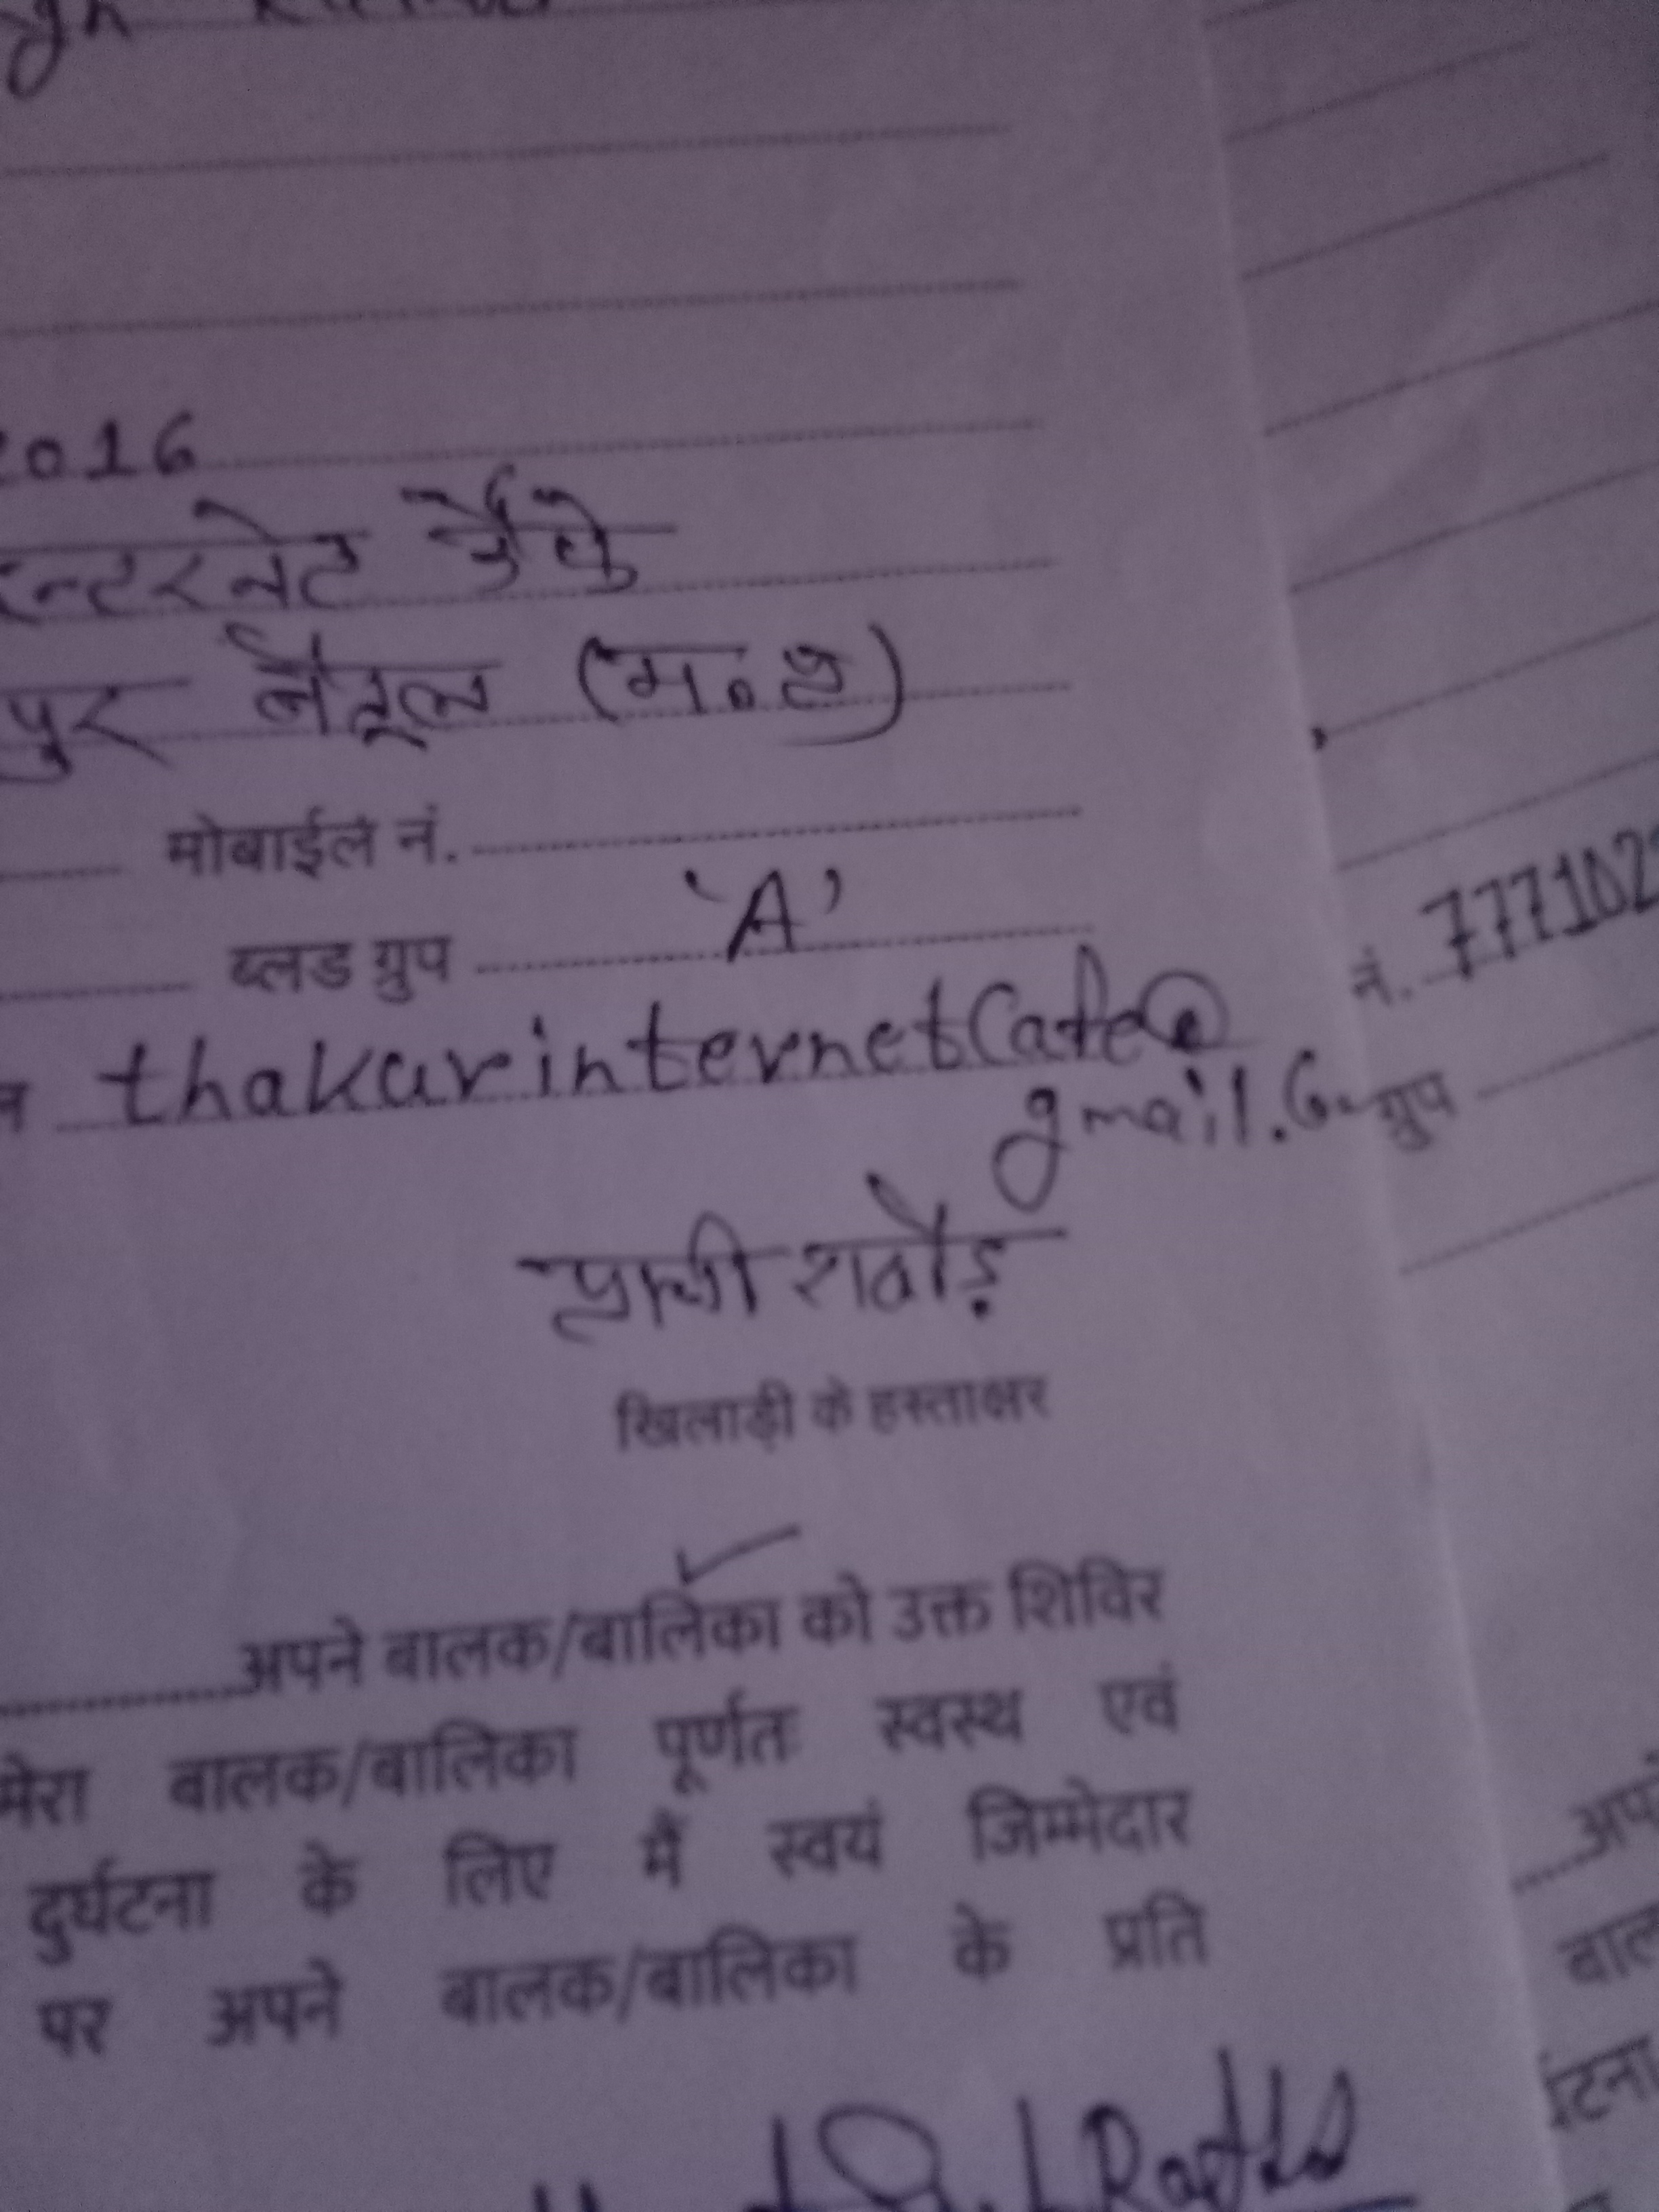 2016
इन्टरनेट कैफे
पुर बैतूल (म.प्र)
मोबाईल नं.
ब्लड ग्रुप 'A'
thakurinternetCafe@
gmail.Com
प्राची राठौड़
खिलाड़ी के हस्ताक्षर
अपने बालक/बालिका को उक्त शिविर
मेरा बालक/बालिका पूर्णतः स्वस्थ एवं
दुर्घटना के लिए मैं स्वयं जिम्मेदार
पर अपने बालक/बालिका के प्रति
नं. 777102
ग्रुप